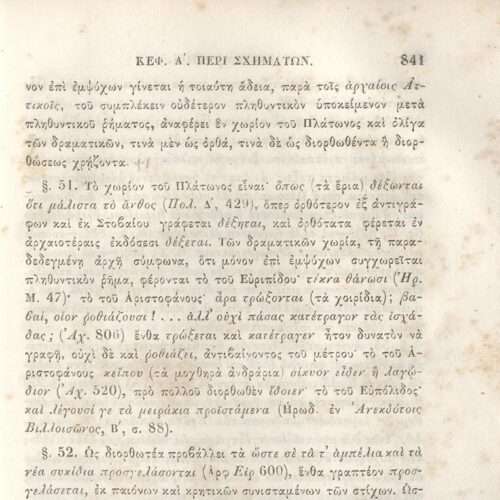 ΚΕΦ. Α΄. ΠΕΡΙ ΣΧΗΜΑΤΩΝ. 841
νον ἐπὶ ἐμψύχων γίνεται ἡ τοιαύτη ἄδεια, παρὰ τοῖς ἀρχαίοις Ἀτ-
τικοῖς, τοῦ συμπλέκειν οὐδέτερον πληθυντικὸν ὑποκείμενον μετὰ
πληθυντικοῦ ῥήματος, ἀναφέρει ἓν χωρίον τοῦ Πλάτωνος καὶ ὀλίγα
τῶν δραματικῶν, τινὰ μὲν ὡς ὀρθά, τινὰ δὲ ὡς διορθωθέντα ἢ διορ-
θώσεως χρῄζοντα.
§. 51. Τὸ χωρίον τοῦ Πλάτωνος εἶναι· ὅπως (τὰ ἔρια) δέξωνται
ὅτι μάλιστα τὸ ἄνθος (Πολ. Δ΄, 429), ὅπερ ὀρθότερον ἐξ ἀντιγρά-
φων καὶ ἐκ Στοβαίου γράφεται δέξηται, καὶ ὀρθότατα φέρεται ἐν
ἀρχαιοτέραις ἐκδόσεσι δέξεται. Τῶν δραματικῶν χωρία, τῇ παρα-
δεδεγμένῃ ἀρχῇ σύμφωνα, ὅτι μόνον ἐπὶ ἐμψύχων συγχωρεῖται
πληθυντικὸν ῥῆμα, φέρονται τὸ τοῦ Εὐριπίδου· τέκνα θάνωσι (Ἡρ.
Μ. 47)· τὸ τοῦ Ἀριστοφάνους· ἆρα τρώξονται (τὰ χοιρίδια); βα-
βαί, οἷον ῥοθιάζουσι! . . . ἀλλ᾽ οὐχὶ πάσας κατέτραγον τὰς ἰσχά-
δας; (Ἀχ. 806) ἔνθα τρώξεται καὶ κατέτραγεν ἦτον δυνατὸν νὰ
γραφῇ, οὐχὶ δὲ καὶ ῥοθιάζει, ἀντιβαίνοντος τοῦ μέτρου· τὸ τοῦ Ἀ-
ριστοφάνους κείπου (τὰ μοχθηρὰ ἀνδράρια) σίκυον εἶδεν ἢ λαγῴ-
διον (Ἀχ. 520), πρὸ πολλοῦ διορθωθὲν ἴδοιεν· τὸ τοῦ Εὐπόλιδος·
καὶ λέγουσί γε τὰ μειράκια προϊστάμενα (Ἡρωδ. ἐν Ἀνεκδότοις
Βιλλοισῶνος, Β΄, σ. 88).
§. 52. Ὡς διορθωτέα προβάλλει τὰ ὥστε σὲ τά τ᾽ ἀμπέλια καὶ τὰ
νέα συκίδια προσγελάσονται (Ἀρ. Εἰρ 600), ἔνθα γραπτέον προσ-
γελάσεται, ἐκ παιόνων καὶ κρητικῶν συνισταμένων τῶν στίχων. Ὡσ-